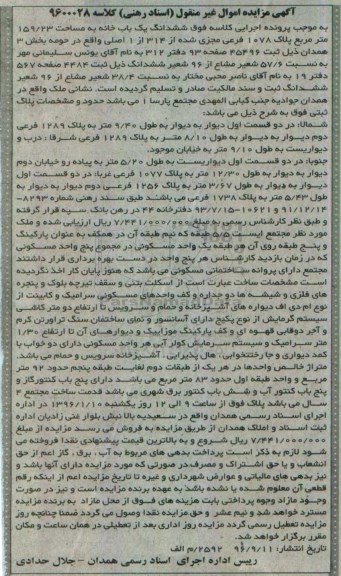 آگهی مزایده اموال غیر منقول (اسناد رهنی) کلاسه ۹۶۰۰۰۲۸
به موجب پرونده اجرایی کلاسه فوق ششدانگ یک باب خانه به مساحت ۱۵۹/۲۳
متر مربع پلاک ۱۰۷۸ فرعی مجزی شده از ۳۱۴ از ۱ اصلی واقع در حومه بخش ۳
همدان ذیل ثبت ۴۵۴۹۶ صفحه ۹۳ دفتر ۳۱۲ به نام آقای یونس سلیمانی مهر
به نسبت ۵۷/۶ شعیر مشاع از ۹۶ شعیر ششدانگ ذیل ثبت ۴۴۸۴ صفحه ۵۶۷
دفتر ۱۹ به نام آقای ناصر محبی مختار به نسبت ۳۸/۴ شعیر مشاع از ۹۶ شعیر
ششدانگ ثبت و سند مالکیت صادر و تسلیم گردیده است. نشانی ملک واقع در
همدان جوادیه جنب کبابی المهدی مجتمع پارسا ۱ می باشد حدود و مشخصات پلاک
ثبتی فوق به شرح ذیل می باشد:
شمالا: در دو قسمت اول دیوار به دیوار به طول ۹/۴۰ متر به پلاک ۱۲۸۹ فرعی
دوم دیوار به دیوار به طول ۸/۱۰ متر به پلاک ۱۲۸۹ فرعی شرقا: درب و
دیواریست به طول ۹/۱۰ متر به خیابان موجود.
جنوبا: در دو قسمت اول دیواریست به طول ۵/۲۰ متر به پیاده رو خیابان دوم
دیوار به دیوار به طول ۱۲/۳۰ متر به پلاک ۱۰۷۷ فرعی غربا: در دو قسمت اول
دیوار به دیوار به طول ۳/۶۷ متر به پلاک ۱۲۵۶ فرعی دوم دیوار به دیوار به
طول ۵/۴۳ متر به پلاک ۱۷۳۸ فرعی می باشد طبق سند رهنی شماره ۸۲۹۳-
۹۱/۱۲/۱۴ و ۱۰۶۲۱-۹۳/۷/۱۵ دفترخانه ۳۴ در رهن بانک سپه قرار گرفته
و طبق نظر کارشناس رسمی به مبلغ ۷/۴۴۱/۰۰۰/۰۰۰ ریال ارزیابی شده و ملک
مورد نظر مجتمع ایست ۵/۵ طبقه که نیم طبقه آن در همکف به عنوان پارکینگ
و پنج طبقه روی آن هر طبقه یک واحد مسکونی در مجموع پنج واحد مسکونی
که در زمان بازدید کارشناس هر پنج واحد در دست بهره برداری قرار داشتند
مجتمع دارای پروانه ساختمانی مسکونی می باشد که هنوز پایان کار اخذ نگردیده
است مشخصات ساخت عبارت است از اسکلت بتنی و سقف تیرچه بلوک و پنجره
های فلزی و شیشه ها دو جداره و کف واحدهای مسکونی سرامیک و کابینت از
نوع ام دی اف دیواره های آشپزخانه و حمام و سرویس تا ارتفاع دو متر کاشی
سیستم گرمایش از نوع پکیج دارای آسانسور و نمای ساختمان سنگ تراورتن کرم
و آجر دوقابی قهوه ای و کف پارکینگ موزاییک و دیوارهای آن تا ارتفاع ۱/۳۰
متر سرامیک و سیستم سرمایش کولر آبی هر واحد مسکونی دارای دو خواب با
کمد دیواری و جا رختخوابی، هال پذیرایی، آشپزخانه سرویس و حمام می باشد.
متراژ خالص واحدها در هر یک از طبقات دوم لغایت طبقه پنجم حدود ۹۲ متر
مربع و واحد طبقه اول حدود ۸۳ متر مربع می باشد دارای پنج باب کنتورگاز و
پنج باب کنتور آب و شش باب کنتور برق شهری می باشد قدمت ساخت مجتمع ۴
سال می باشد پلاک فوق از ساعت ۹ الی ۱۲ روز یکشنبه ۱۳۹۶/۱۰/۱۰ در اداره
اجرای اسناد رسمی همدان واقع در سعیدیه بالا نبش بلوار غنی زادیان اداره
ثبت اسناد و املاک همدان از طریق مزایده به فروش می رسد مزایده از مبلغ
۷/۴۴۱/۰۰۰/۰۰۰ ریال شروع و به بالاترین قیمت پیشنهادی نقدا فروخته می
شود لازم به ذکر است پرداخت بدهی های مربوط به آب، برق، گاز اعم از حق
انشعاب و یا حق اشتراک و مصرف در صورتی که مورد مزایده دارای آنها باشد و
نیز بدهی های مالیاتی و عوارض شهرداری و غیره تا تاریخ مزایده اعم از اینکه رقم
قطعی آن معلوم شده یا نشده باشد به عهده برنده مزایده است و نیز در صورت
وجود مازاد وجوه پرداختی بابت هزینه های فوق از محل مازاد به برنده مزایده
مسترد خواهد شد و نیم عشر و حق مزایده نقدا وصول می گردد ضمنا چنانچه روز
مزایده تعطیل رسمی گردد مزایده روز اداری بعد از تعطیلی در همان ساعت و مکان
مقرر برگزار خواهد شد.
تاریخ انتشار: ۹۶/۹/۱۱ ۲۵۹۲/م الف
رییس اداره اجرای اسناد رسمی همدان - جلال حدادی